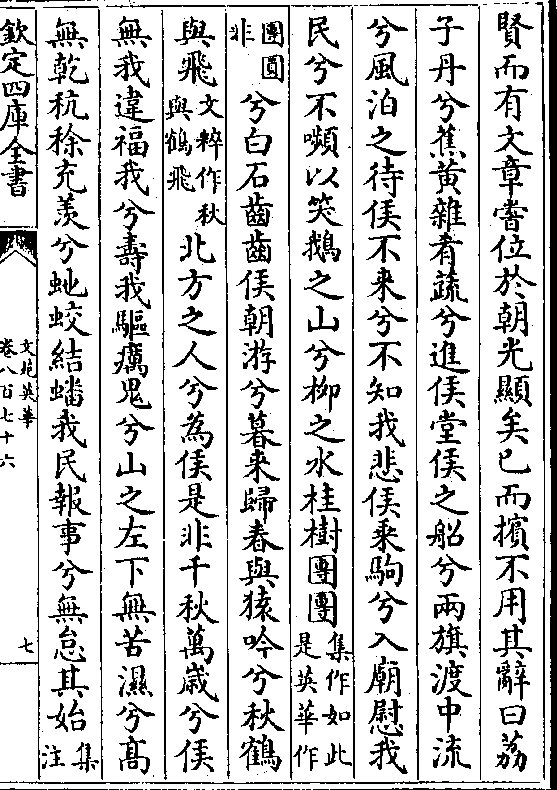 賢而有文章嘗位於朝光顯矣已而擯不用其辭曰荔
子丹兮蕉黃雜肴蔬兮進侯堂侯之船兮兩旗渡中流
兮風泊之待侯不來兮不知我悲侯乘駒兮入廟慰我
民兮不嚬以笑鵝之山兮柳之水桂樹團團集作如此是英華作
團圓非兮白石齒齒侯朝游兮暮來歸春與猿吟兮秋鶴
與飛文粹作秋與鶴飛北方之人兮為侯是非千秋萬歲兮侯
無我違福我兮壽我驅癘鬼兮山之左下無苦濕兮高
無乾秔稌充羨兮虵蛟結蟠我民報事兮無怠其始集注
欽定四庫全書
文苑英華
卷八百七十六
七